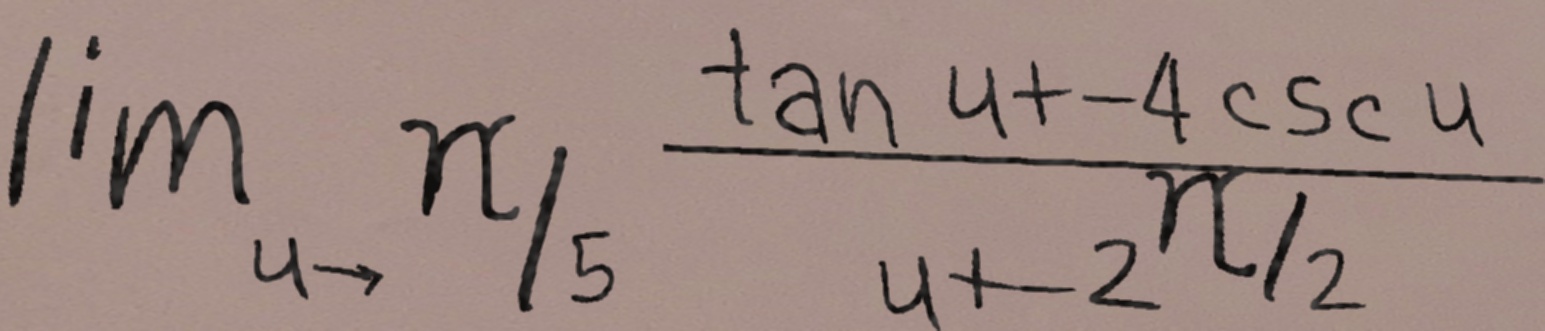 lim u→ π/5 tan u+-4 csc u
u+-2 π/2